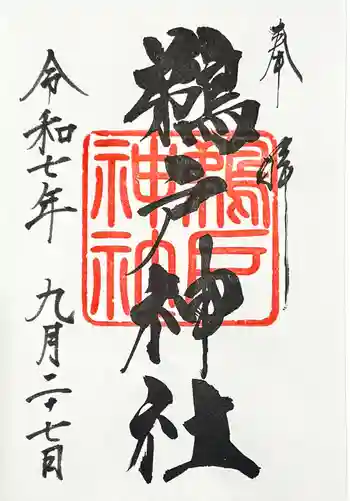 奉拝
鵜戸神社
鵜戸
神社
令和七年 九月二十七日